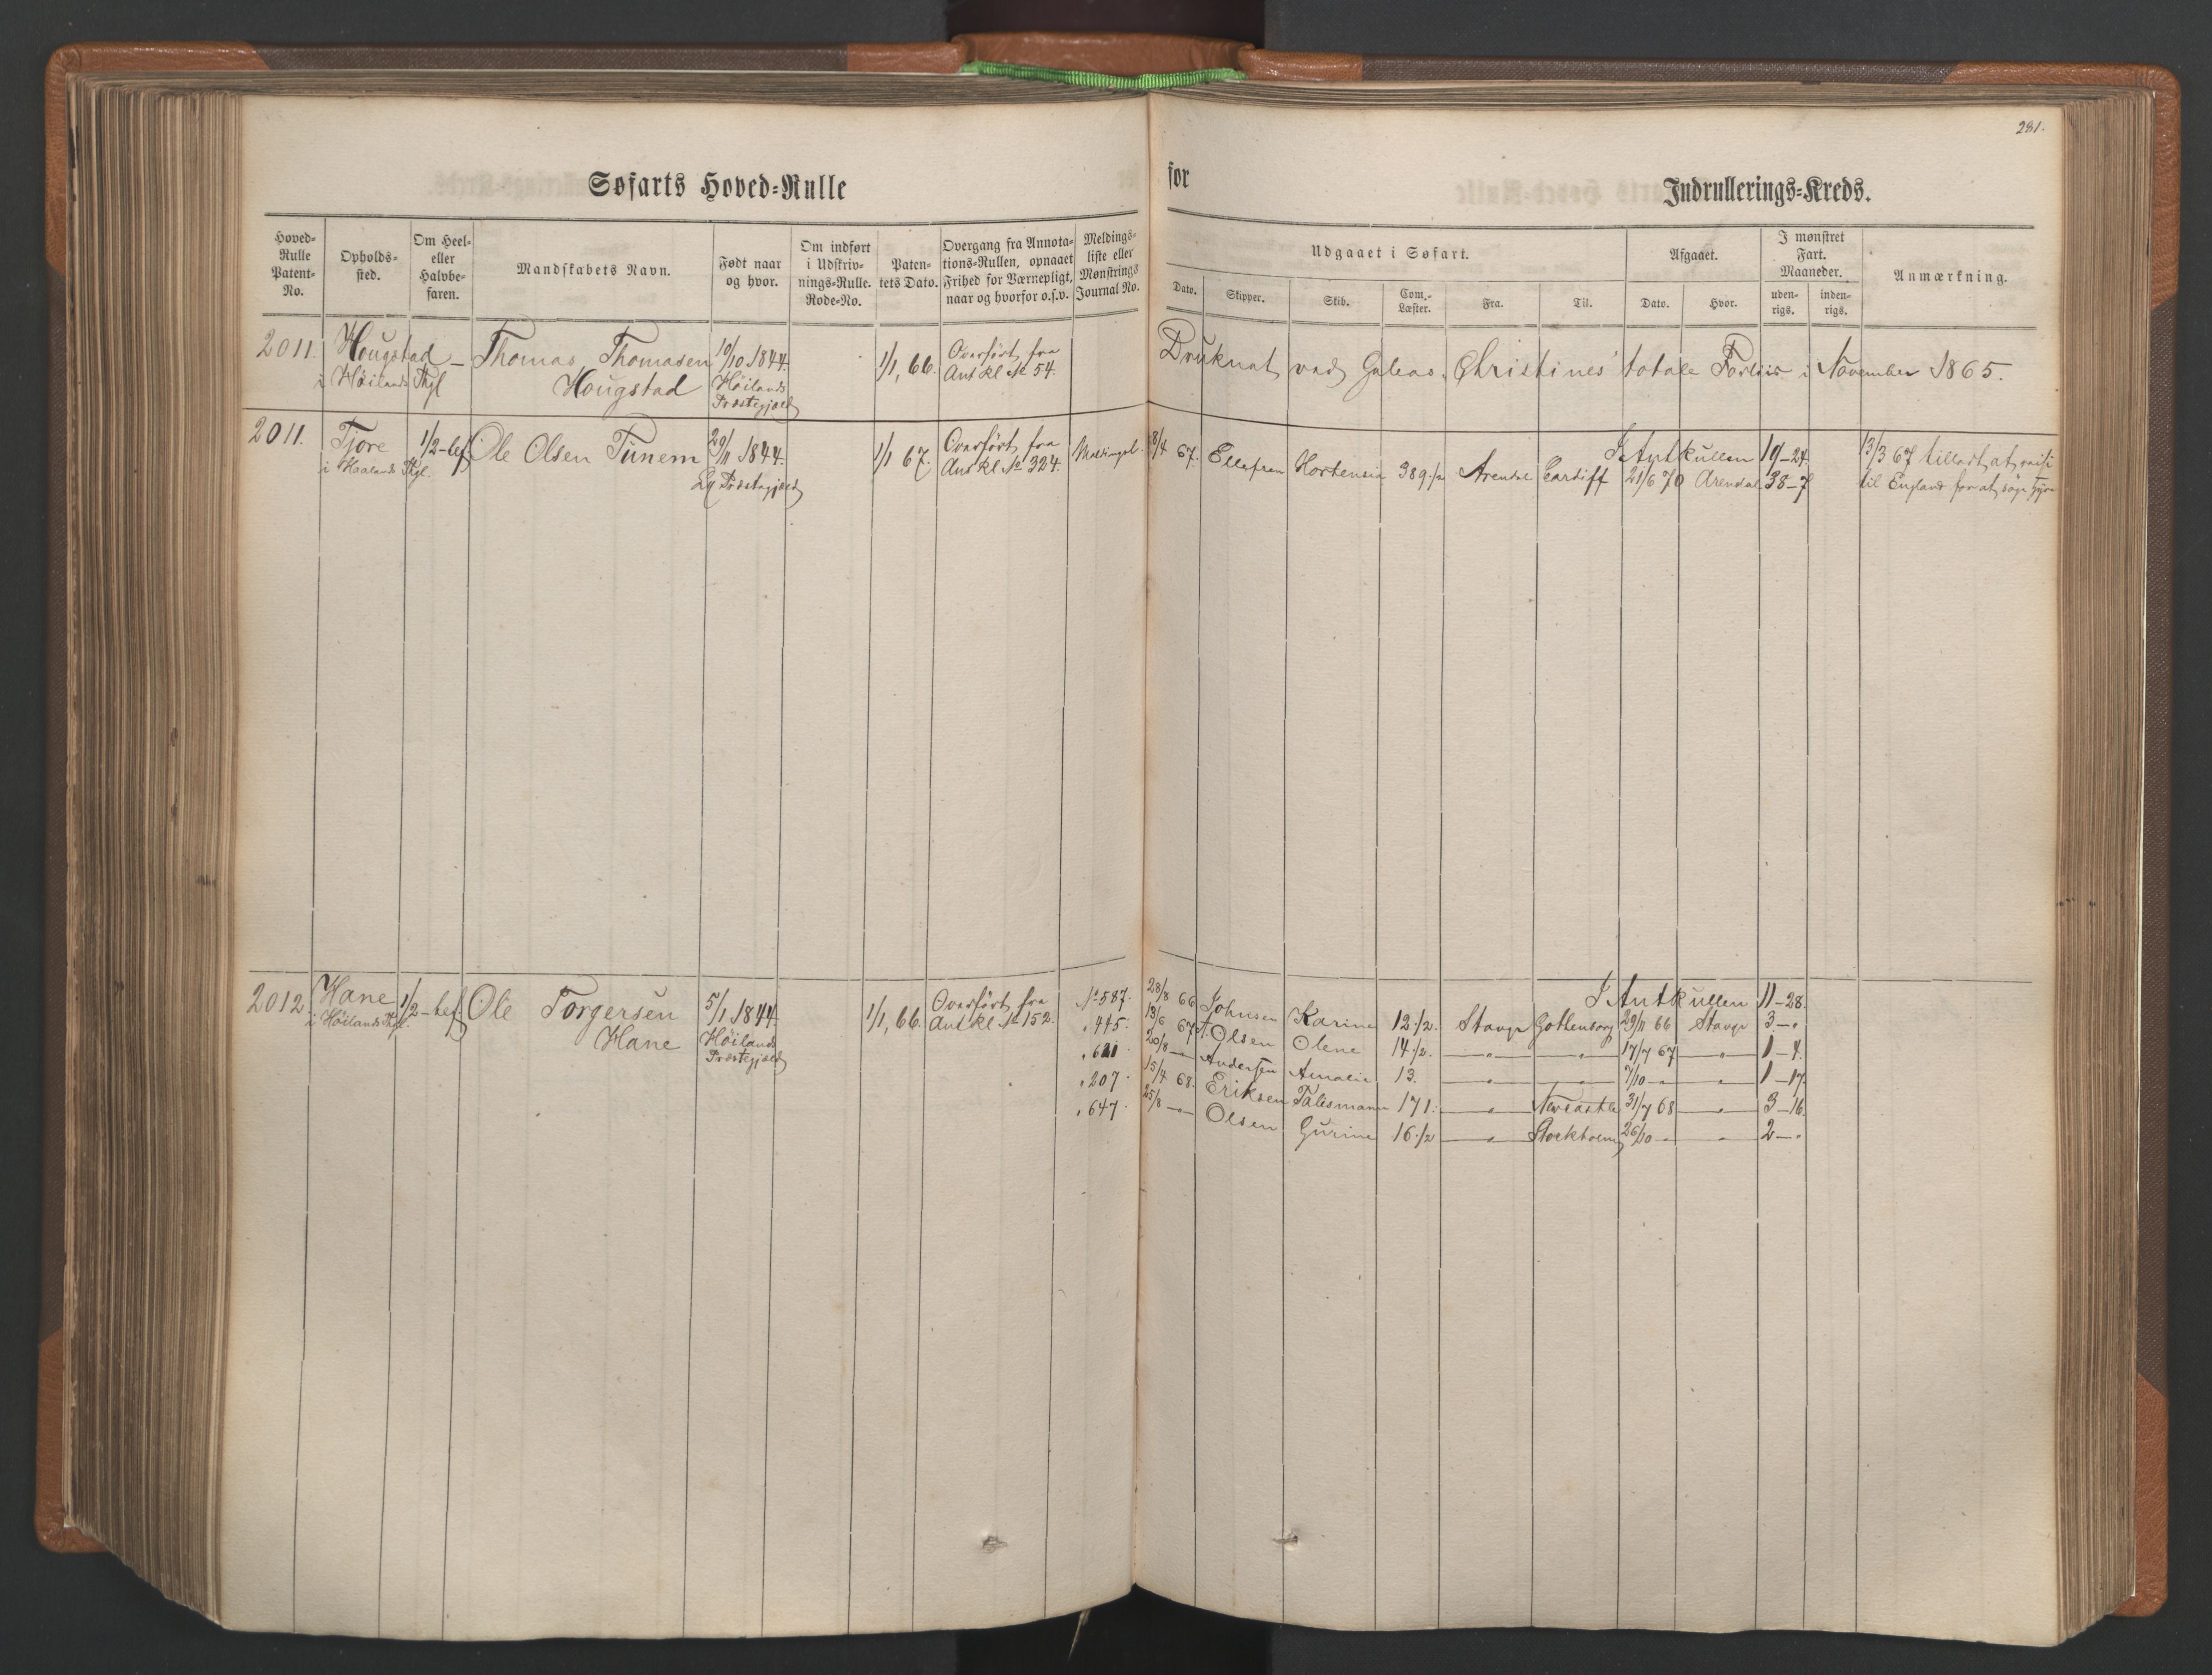 281.
Søfarts Hoved=Rulle
for
Indrullerings=Kreds.
Hoved= Rulle Patent= No.
Opholds= sted.
Om Heel= eller Halvbe= faren.
Mandskabets Navn.
Født naar og hvor.
Om indført i Udskriv= nings=Rulle. Rode=No.
Paten= tets Dato.
Overgang fra Annota= tions=Rullen, opnaaet Frihed for Værnepligt, naar og hvorfor o.s.v.
Meldings= liste eller Mønstrings Journal No.
Udgaaet i Søfart.
Dato.
Skipper.
Skib.
Com.= Læster.
Fra.
Til.
Afgaaet.
Dato.
Hvor.
I mønstret Fart. Maaneder.
uden= rigs.
inden= rigs.
Anmærkning.
2011. Hougstad – Thomas Thomasen 19/10 1844. 1/1, 66. Overført fra Druknet ved Galeas "Christines" totale Forliis i November 1865.
i Höilands Thgl Hougstad Höilands Ant kl № 54.
Præstegjæld
2011. Tjore 1/2-bef Ole Olsen Tunem 29/11 1844. 1/1 67. Overført fra Meldingsl. 8/4 67. Ellefsen Hortensia 389 1/2 Arendal Cardiff I Antkullen 19–24 13/3 67 tilladt at reise
i Haalands Thgl. Præstegjæld Ant kl № 324. 21/6 70 Arendal 38–7 til England for at søge Hyre
2012. Hane 1/2-bef. Ole Torgersen 5/1 1844. 1/1, 66. Overført fra I Antkullen 11–28.
i Höilands Thgl. Hane Höilands Ant kl № 152.
Præstegjæld
№ 587. 28/8 66 Johnsen Karine 12 1/2. Stavgr Gothenborg 29/11 66 Stavgr 3–"
" 445. 13/6 67 T. Olsen Olene 14 1/2. –"– –"– 17/7 67 –"– 1–4.
" 621. 20/8 –"– Andersen Amalie 13. –"– –"– 7/10 –"– –"– 1–17.
" 207. 15/4 68. Eriksen Talismann 171. –"– Newcastle 31/7 68 –"– 3–16.
" 647. 25/8 –"– Olsen Gurine 16 1/2 –"– Stockholm 26/10 –"– –"– 2–"